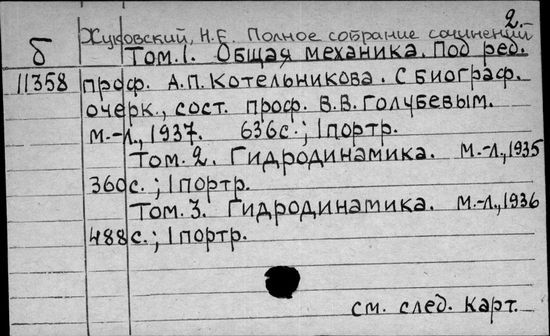 2.
Жуковский, Н.Е. Полное собрание сочинений
б Том.1. Общая механика. Под ред.
11358 проф. А.П. Котельникова. С биограф.
очерк., сост. проф. В.В. Голубевым.
М.-Л., 1937. 636с.; 1 портр.
Том. 2. Гидродинамика. М.-Л., 1935
360с.; 1 портр.
Том. 3. Гидродинамика. М.-Л., 1936
488с.; 1 портр.
см. след. карт.